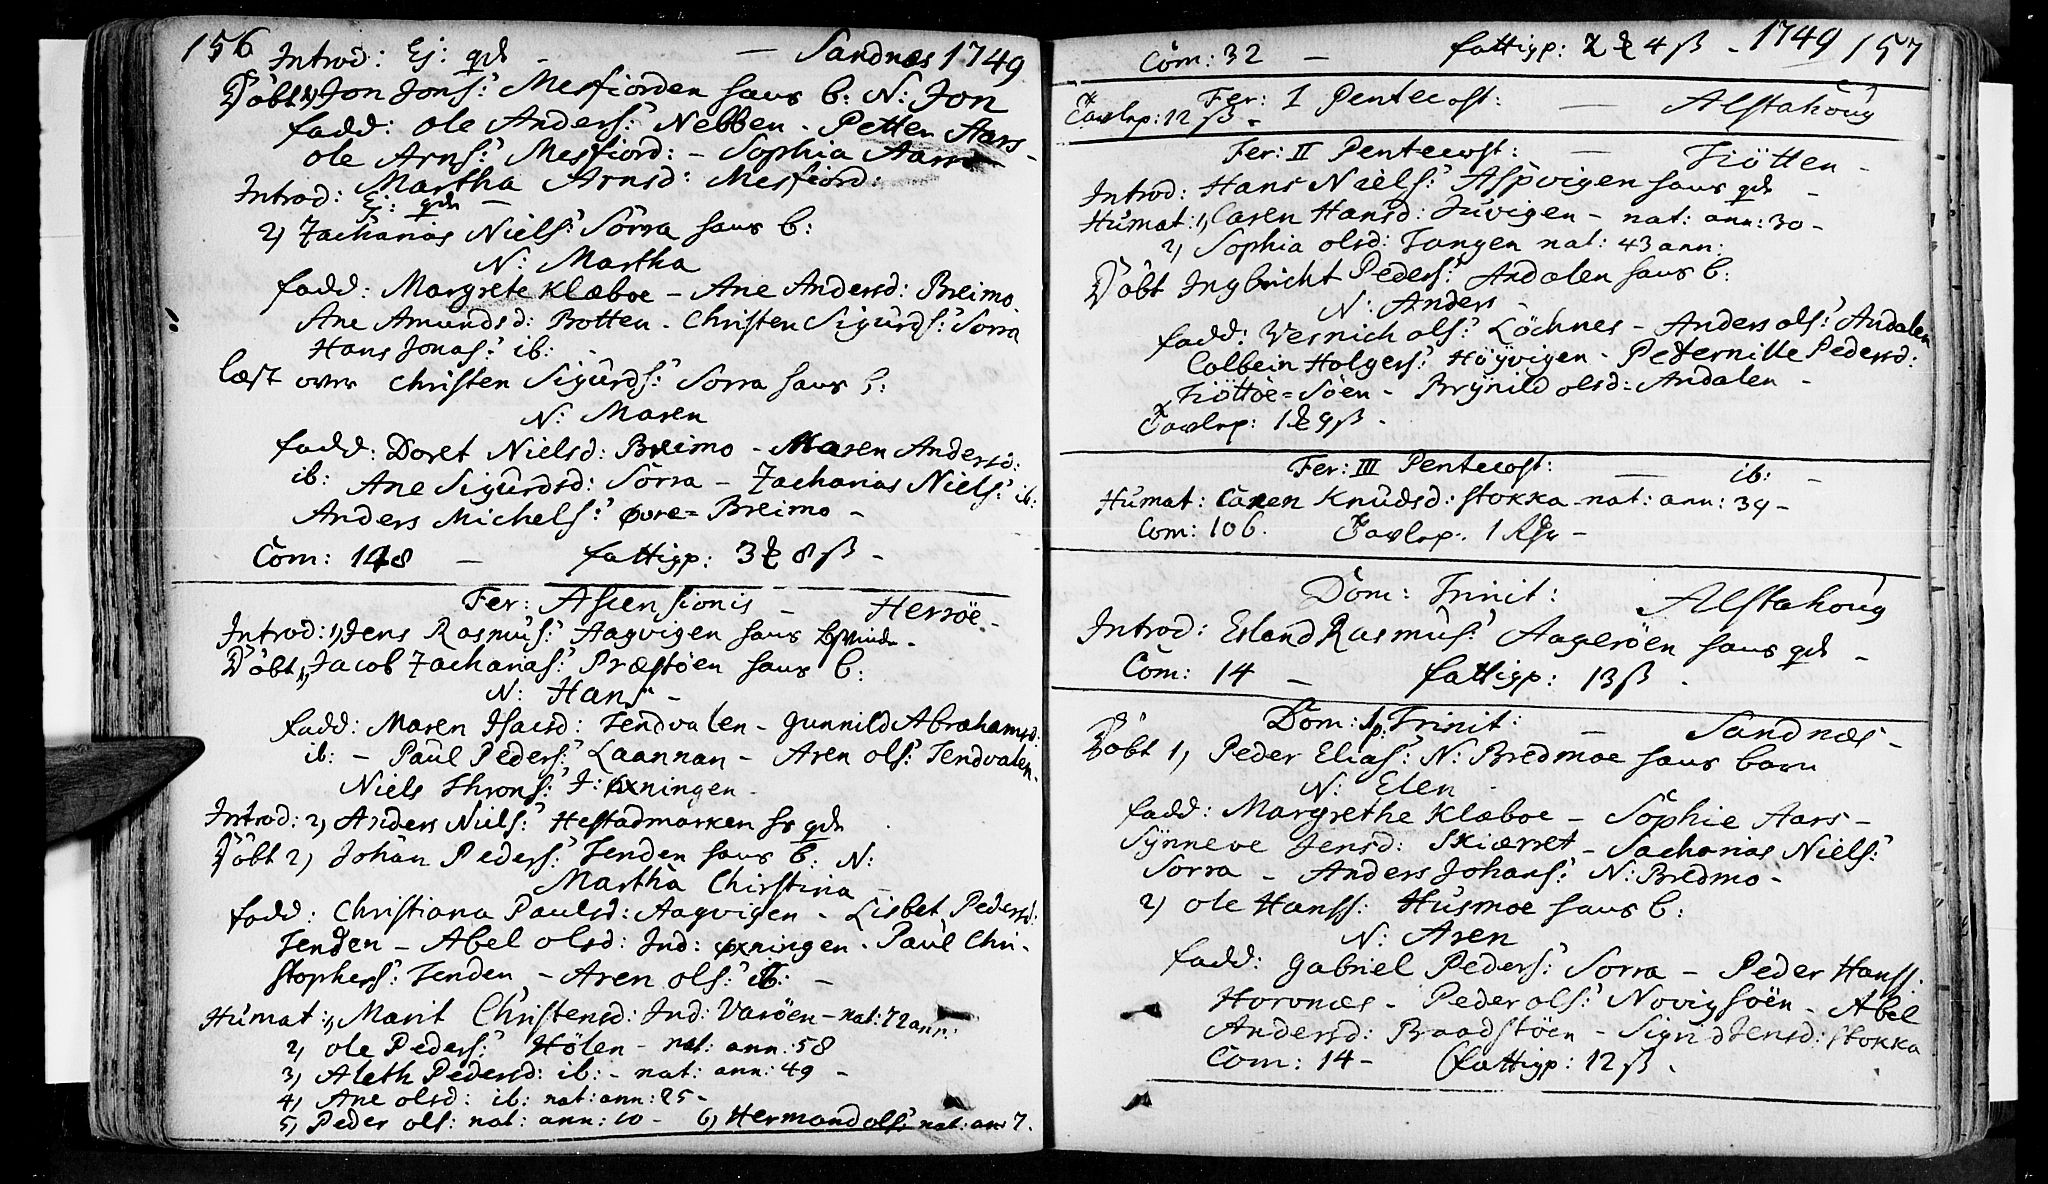 156 Introd: Ej: qdr - — Sandnæs 1749
Döbt 1, Jon Jons: Mesfiorden haus b: N: Jon
fadd: ole Anders: Nebben - Petter Aars -
ole Arns: Mesfiord: - Sophia Aars
Martha Arnsd: Mesfiord:
Introd: Ej: qdr —
2, Zacharias Niels: Sörra haus b:
N: Martha
fadd: Margrete Klæboe - Ane Andersd: Breimo
Ane Amundsd: Botten - Christen Sigurds: Sorra
Hans Jonas: ib: -
læst over Christen Sigurds: Sorra haus b:
N: Maren
fadd: Doret Nielsd: Breimo - Maren Andersd:
ib: Ane Sigurdsd: Sörra - Zacharias Niels: ib:
Anders Michels: øvre= Breimo -
Com: 148 — fattigp: 3 8 ß -
Fer: Ascensionis - Herröe -
Introd: 1, Jens Rasmus: Aagvigen haus qvinde -
Döbt 1, Jacob Zacharias: Præstöen haus b:
N: Hans -
fadd: Maren Isacsd: Tendvalen - Gunnild Abrahamsd:
ib: - Paul Peders: Laannan - Aren ols: Tendvalen -
Niels Throns: I: øxningen -
Introd: 2, Anders Niels: Hestadmarken hs qdr
Döbt 2, Johan Peders: Tenden haus b: N:
Martha Chirstina —
fadd: Christiana Paulsd: Aagvigen - Lisbet Pedersd:
Tenden - Abel olsd: Ind: øxningen - Paul Chri-
stophers: Tenden - Aren ols: ib: -
Humat: 1, Marit Christensd: Ind: Varöen - nat: 72 ann:
2, ole Peders: Hölen - nat: ann: 58
3, Aleth Pedersd: ib: - nat: ann: 49 -
4, Ane olsd: ib: nat: ann: 25 -
5, Peder ols: nat: ann: 10 - 6, Hermand ols: nat: an: 7.
Com: 32 — fattigp: 2 4 ß - 1749 157
Fer: I Pentecost: — Alstahoug
Tavlep: 12 ß -
Fer: II Pentecost: — Tiötten -
Introd: Hans Niels: Aspvigen haus qdr -
Humat: 1, Caren Hansd: Juvigen - nat: ann: 30 -
2, Sophia olsd: Tangen nat: 43 ann:
Döbt Ingbricht Peders: Andalen haus b:
N: Anders -
fadd: Wernich ols: Löchnes - Anders ols: Andalen
Colbein Holgers: Höyvigen - Peternille Pedersd:
Tiöttöe=Söen - Brynild olsd= Andalen -
Tavlep: 1 9 ß -
Fer: III Pentecost: — ib: -
Humat: Caren Knudsd: Stokka nat: ann: 39 -
Com: 106. Tavlep: 1 Rdr -
Dom: Trinit: Alstahoug
Introd: Erland Rasmus: Aageröen haus qdr -
Com: 14 — fattigp: 13 ß -
Dom: 1 p: Trinit: — Sandnæs -
Döbt 1, Peder Elias: N: Bredmoe haus barn
N: Elen -
fadd: Margrethe Klæboe - Sophie Aars -
Synneve Jensd: Skiærret - Sacharias Niels:
Sorra - Anders Johans: N: Bredmo -
2, ole Hanss: Husmoe haus b:
N: Aren
fadd: Gabriel Peders: Sorra - Peder Hanss:
Horvnæs - Peder ols: Novigsöen - Abel
Andersd: Braadstöen - Sigrid Jensd: Stokka
Com: 14 - fattigp: 12 ß -